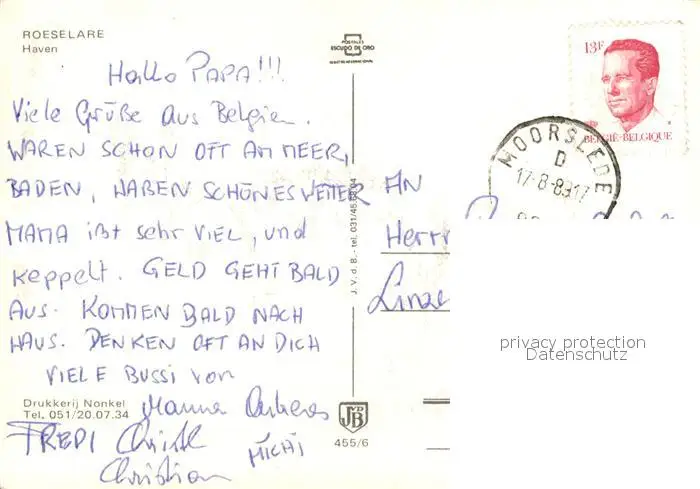 ROESELARE
Haven
POSTALES
ESCUDO DE ORO
13F
BELGIË-BELGIQUE
MOORSLEDE
D
17-8-89 17
Hallo PAPA!!!
Viele Grüße aus Belgien.
WAREN SCHON OFT AM MEER,
BADEN, HABEN SCHÖNES WETTER
MAMA ißt sehr VIEL, und
keppelt. GELD GEHT BALD
AUS. KOMMEN BALD NACH
HAUS. DENKEN OFT AN DICH
VIELE BUSSI VON
Mamma
FREDI
MICHI
Christian
AN
Herrn
Drukkerij Nonkel
Tel. 051/20.07.34
J.V.d.B. - tel. 031/45.
JVDB
455/6
privacy protection
Datenschutz